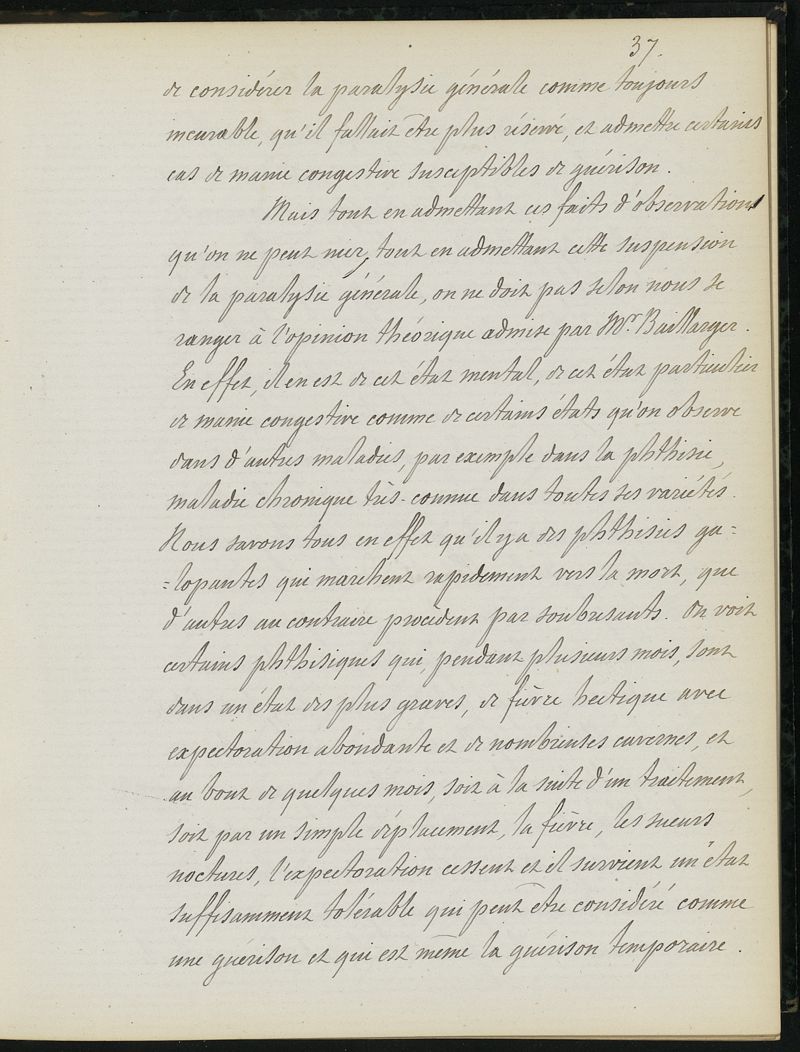 37.
de considérer la paralysie générale comme toujours
incurable, qu'il fallait être plus réservé, et admettre certains
cas de manie congestive susceptibles de guérison.
Mais tout en admettant ces faits d'observation
qu'on ne peut nier, tout en admettant cette suspension
de la paralysie générale, on ne doit pas selon nous se
ranger à l'opinion théorique admise par Mr. Baillarger.
En effet, il en est de cet état mental, de cet état particulier
de manie congestive comme de certains états qu'on observe
dans d'autres maladies, par exemple dans la phthisie,
maladie chronique très-connue dans toutes ses variétés.
Nous savons tous en effet qu'il y a des phthisies ga=
=lopantes qui marchent rapidement vers la mort, que
d'autres au contraire procèdent par soubresauts. On voit
certains phthisiques qui, pendant plusieurs mois, sont
dans un état des plus graves, de fièvre hectique avec
expectoration abondante et de nombreuses cavernes, et
au bout de quelques mois, soit à la suite d'un traitement,
soit par un simple déplacement, la fièvre, les sueurs
noctures, l'expectoration cessent et il survient un état
suffisamment tolérable qui peut être considéré comme
une guérison et qui est même la guérison temporaire.